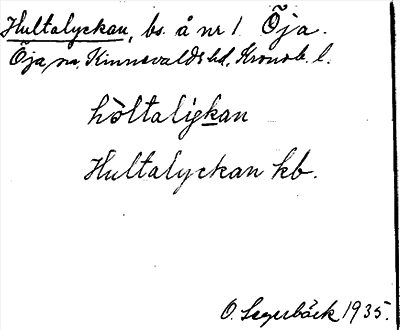 Hultalyckan, bs. å nr 1. Öja.
Öja sn, Kinnevalds hd, Kronob. l.
hòltaligkan
Hultalyckan kb.
O. Segerbäck 1935.